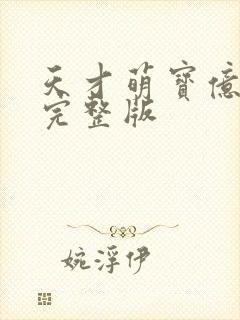 天才萌寶億
完整版
婉浮伊